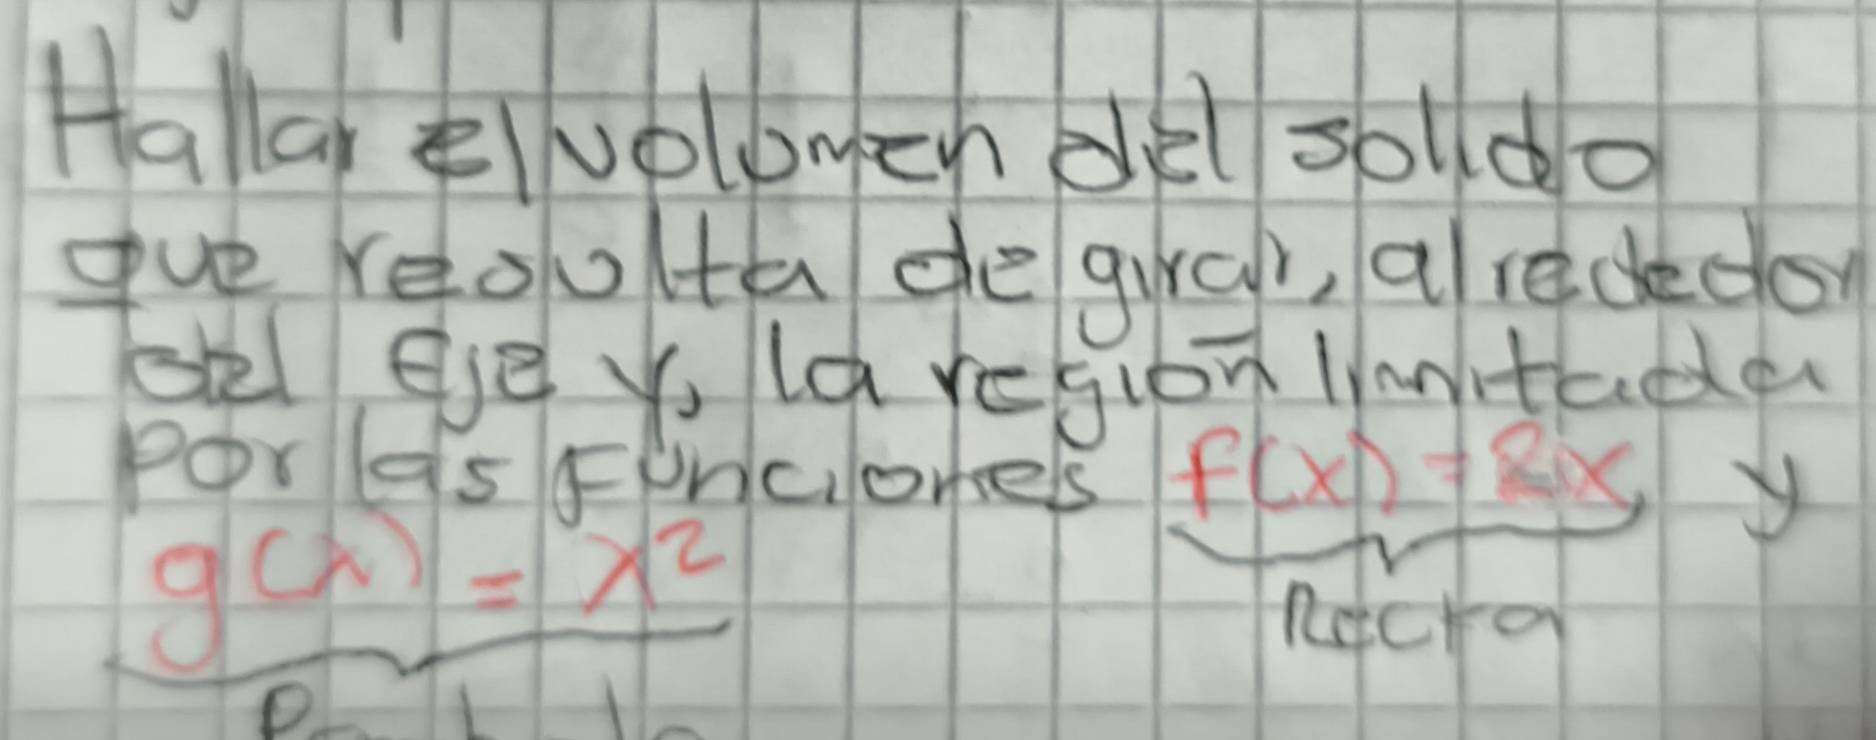 Hallar el volumen del solido
que resulta de girar, alrededor
del Eje y, la región limitada
Por las Funciones f(x) = 2x, y
g(x) = x²
Recta